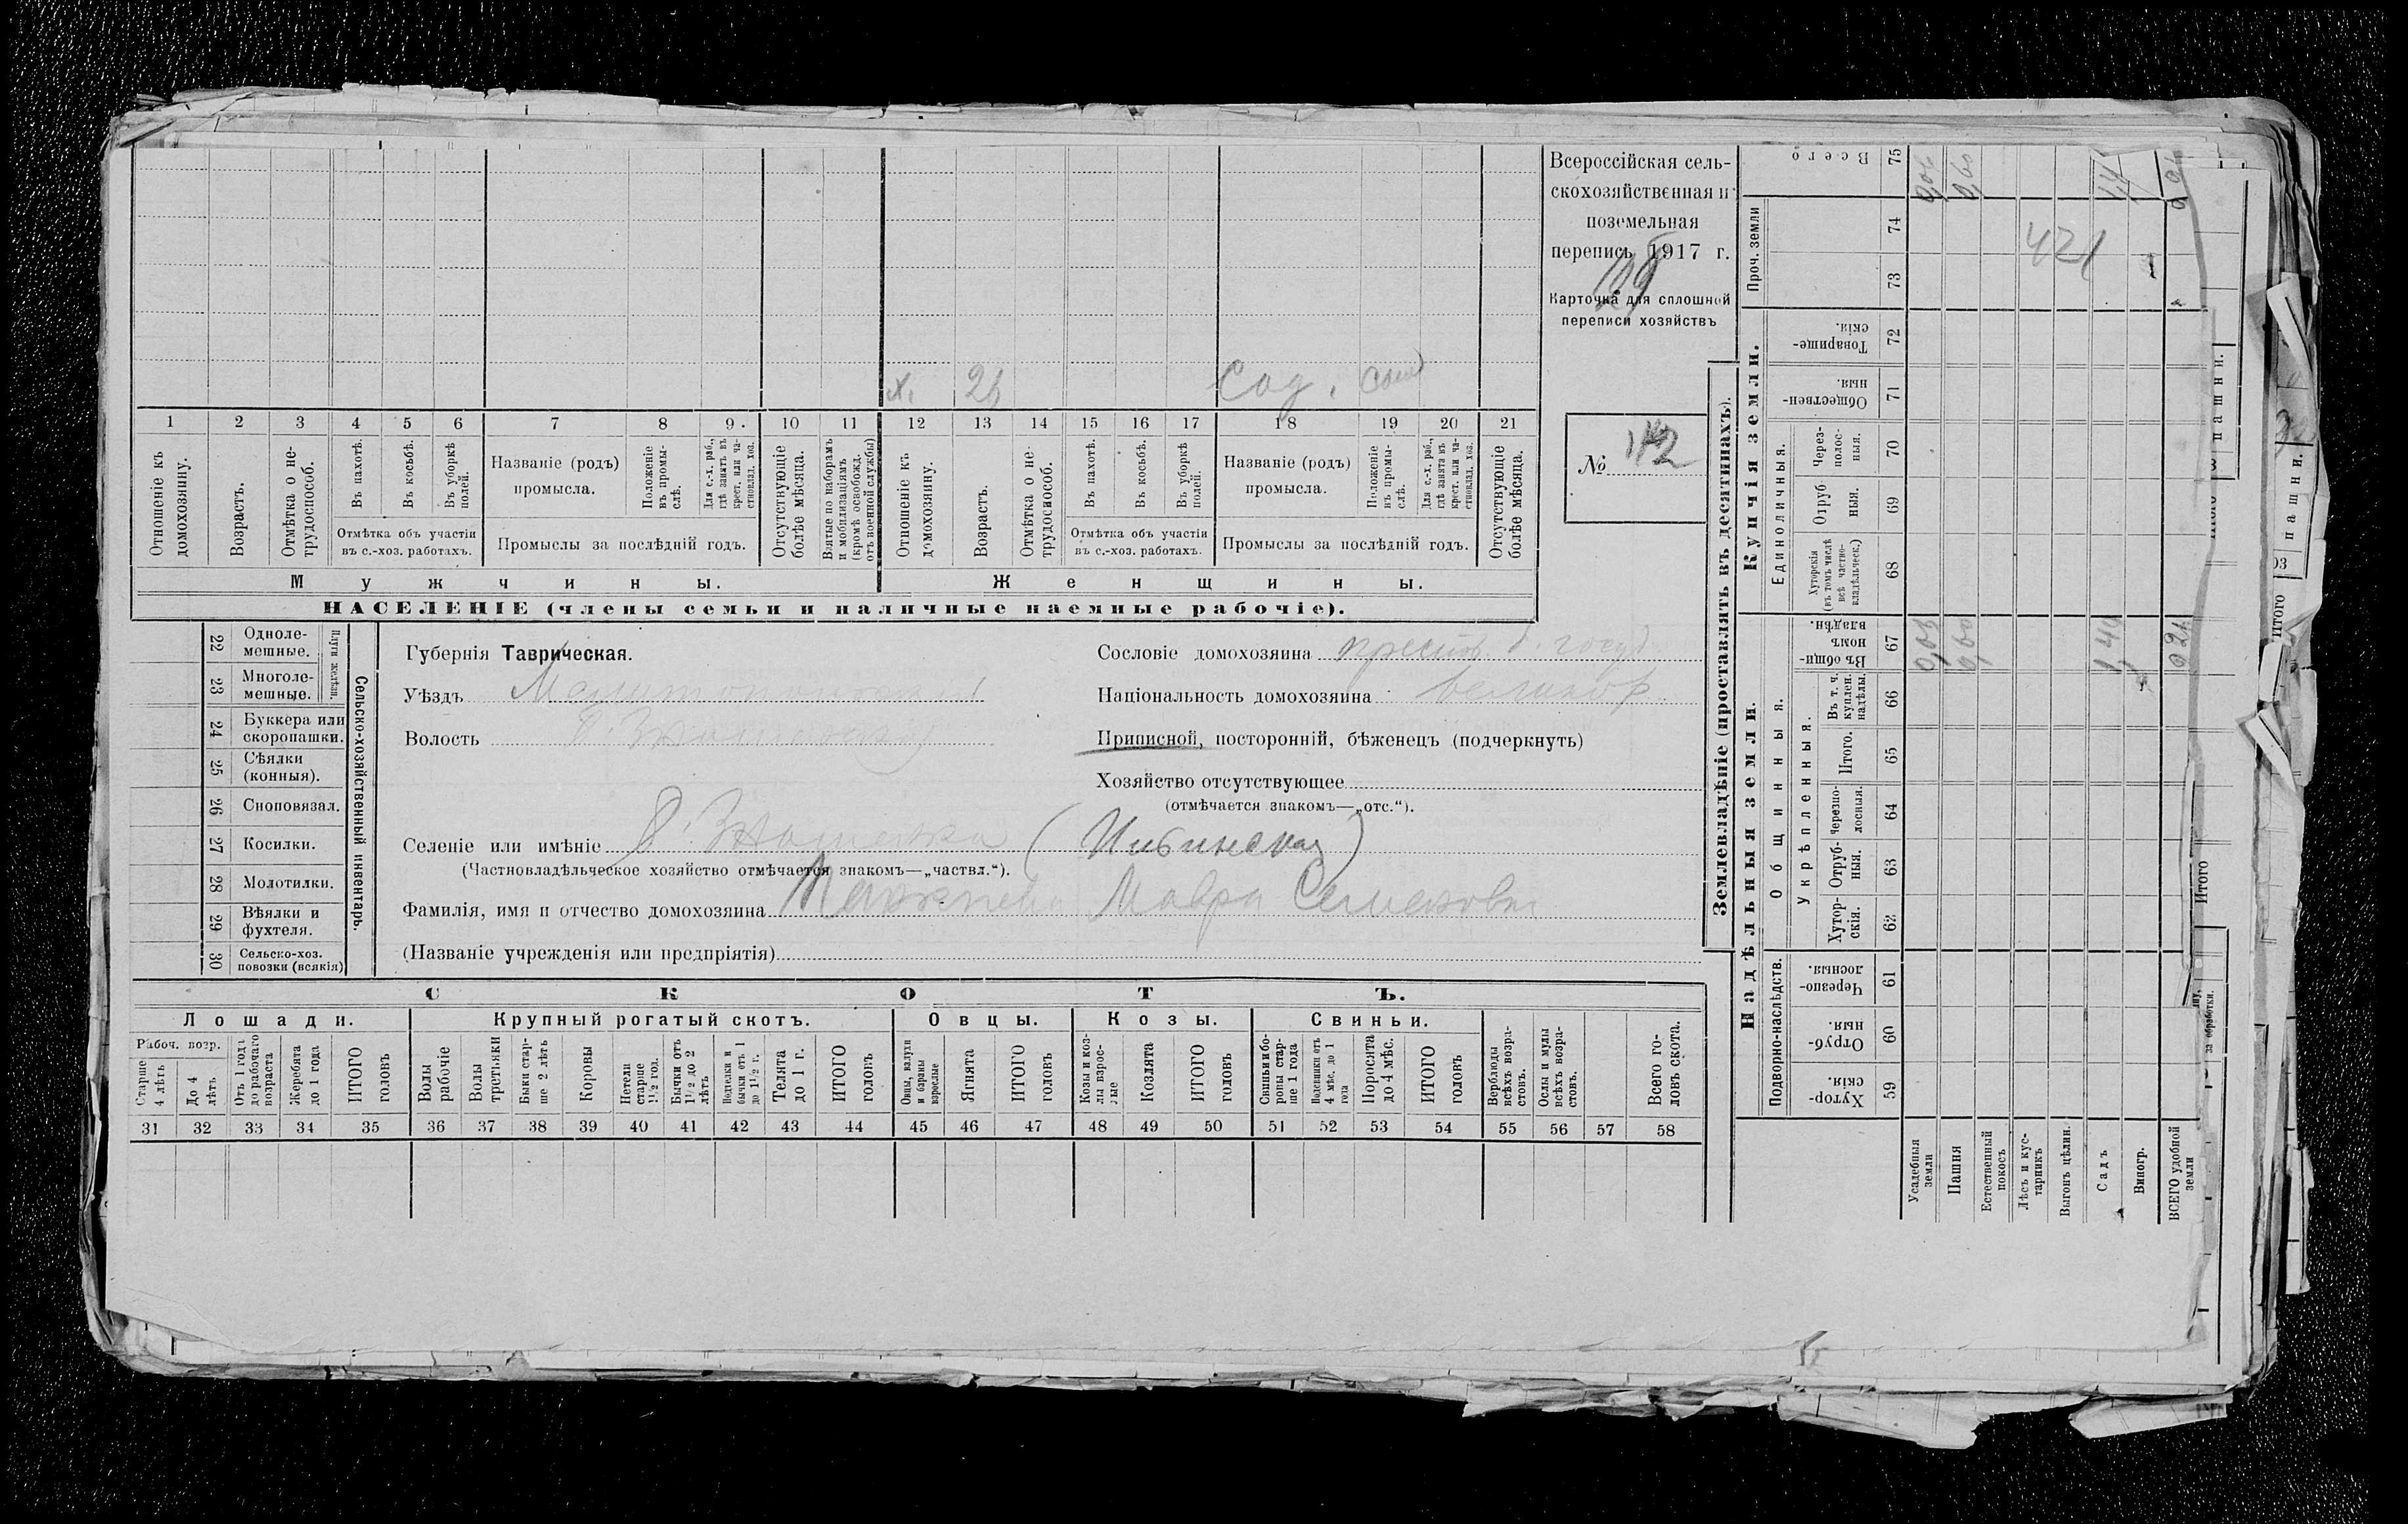 Всероссійская сель-
скохозяйственная и
поземельная
перепись 1917 г.
Карточка для сплошной
переписи хозяйствъ
№ 142
х. 26 Сад.
1 2 3 4 5 6 7 8 9. 10 11 12 13 14 15 16 17 18 19 20 21
Отношеніе къ
домохозяину.
Возрастъ.
Отмѣтка о не-
трудоспособ.
Въ пахотѣ.
Въ косьбѣ.
Въ уборкѣ
полей.
Отмѣтка объ участіи
въ с.-хоз. работахъ.
Названіе (родъ)
промысла.
Положеніе
въ промы-
слѣ.
Для с.-х. раб.,
гдѣ занятъ въ
крест. или ча-
стновлад. хоз.
Промыслы за послѣдній годъ.
Отсутствующіе
болѣе мѣсяца.
Взятые по наборамъ
и мобилизаціямъ
(кромѣ освобожд.
отъ военной службы)
Отношеніе къ
домохозяину.
Возрастъ.
Отмѣтка о не-
трудоспособ.
Въ пахотѣ.
Въ косьбѣ.
Въ уборкѣ
полей.
Отмѣтка объ участіи
въ с.-хоз. работахъ.
Названіе (родъ)
промысла.
Положеніе
въ промы-
слѣ.
Для с.-х. раб.,
гдѣ занята въ
крест. или ча-
стновлад. хоз.
Промыслы за послѣдній годъ.
Отсутствующіе
болѣе мѣсяца.
Мужчины.
Женщины.
НАСЕЛЕНІЕ (члены семьи и наличные наемные рабочіе).
22 Одноле-
мешные.
23 Многоле-
мешные.
Плуги желѣзн.
24 Буккера или
скоропашки.
25 Сѣялки
(конныя).
26 Сноповязал.
27 Косилки.
28 Молотилки.
29 Вѣялки и
фухтеля.
30 Сельско-хоз.
повозки (всякія)
Сельско-хозяйственный инвентарь.
Губернія Таврическая.
Уѣздъ Мелитопольскій
Волость Б. Знаменская
Сословіе домохозяина крестьян. б. госуд.
Національность домохозяина великор.
Приписной, посторонній, бѣженецъ (подчеркнуть)
Хозяйство отсутствующее
(отмѣчается знакомъ—„отс.“).
Селеніе или имѣніе Б. Знаменка
(Частновладѣльческое хозяйство отмѣчается знакомъ—„частвл.“).
Фамилія, имя и отчество домохозяина Мавра Семеновна
(Названіе учрежденія или предпріятія)
СКОТЪ.
Лошади.
Рабоч. возр.
Старше
4 лѣтъ
До 4
лѣтъ
Отъ 1 года
до рабочаго
возраста
Жеребята
до 1 года
ИТОГО
головъ
Крупный рогатый скотъ.
Волы
рабочіе
Волы
третьяки
Быки стар-
ше 2 лѣтъ
Коровы
Нетели
старше
1½ год.
Бычки отъ
1½ до 2
лѣтъ
Подтелки и
бычки отъ 1
до 1½ г.
Телята
до 1 г.
ИТОГО
головъ
Овцы.
Овцы, валухи
и бараны
взрослые
Ягнята
ИТОГО
головъ
Козы.
Козы и коз-
лы взрос-
лые
Козлята
ИТОГО
головъ
Свиньи.
Свиньи и бо-
ровы стар-
ше 1 года
Подсвинки отъ
4 мѣс. до 1
года
Поросята
до 4 мѣс.
ИТОГО
головъ
Верблюды
всѣхъ возра-
стовъ.
Ослы и мулы
всѣхъ возра-
стовъ.
Всего го-
ловъ скота.
31 32 33 34 35 36 37 38 39 40 41 42 43 44 45 46 47 48 49 50 51 52 53 54 55 56 57 58
Землевладѣніе (проставлять въ десятинахъ).
Надѣльныя земли.
Подворно-наслѣдств.
Хутор-
скія. 59
Отруб-
ныя. 60
Черезпо-
лосныя. 61
Общинныя.
Укрѣпленныя.
Хутор-
скія. 62
Отруб-
ныя. 63
Черезпо-
лосныя. 64
Итого. 65
Въ т. ч.
куплен.
надѣлы. 66
Въ общи-
номъ
владѣн. 67
Купчія земли.
Единоличныя.
Хуторскія
(въ томъ числѣ
всѣ частно-
владѣльческ.) 68
Отруб
ныя. 69
Через-
полос-
ныя. 70
Обществен-
ныя. 71
Товарище-
скія. 72
Проч. земли
73
74
Всего 75
421
Усадебныя
земли
Пашня
Естественный
покосъ
Лѣсъ и кус-
тарникъ
Выгонъ цѣлин.
Садъ
Виногр.
ВСЕГО удобной
земли
пашни.
Итого
Итого
пашни.